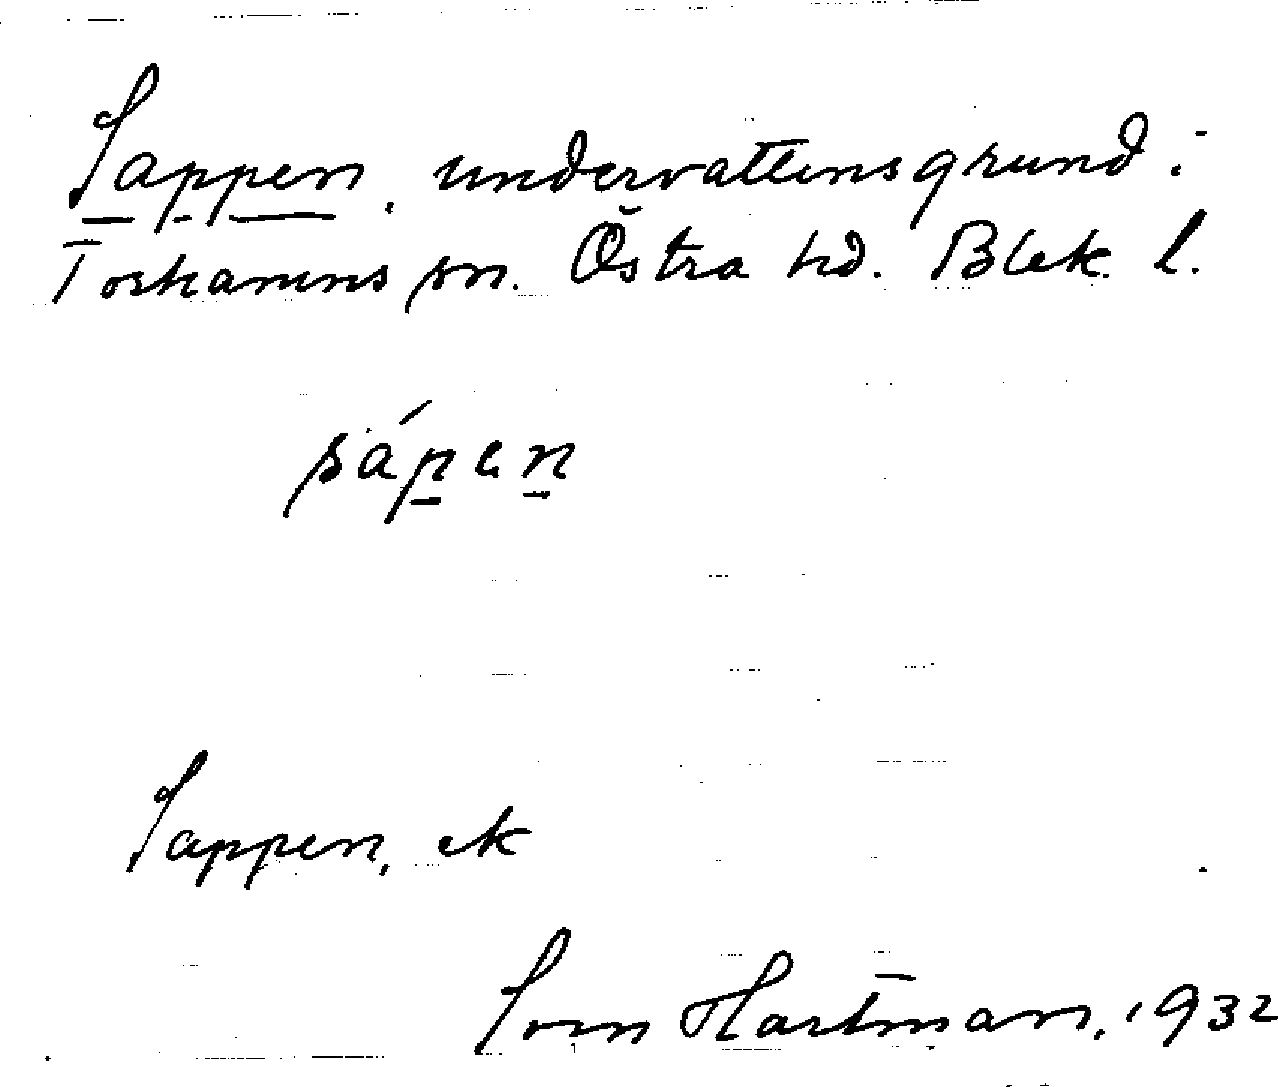 Sappen, undervattensgrund i
Torhamns sn. Östra hd. Blek. l.
sápen
Sappen, ek
Sven Hartman, 1932